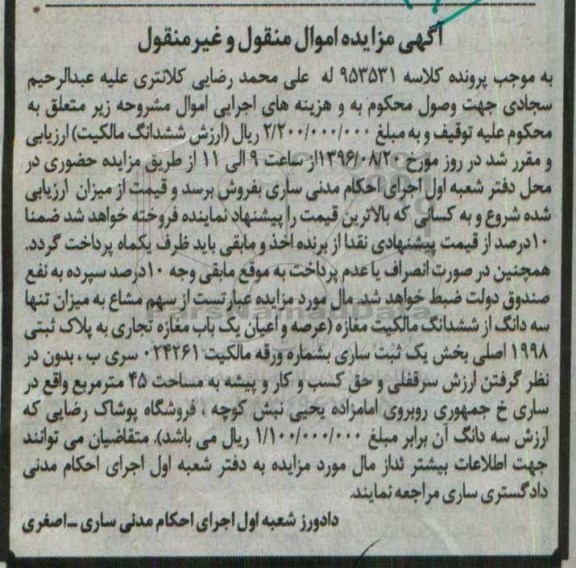 آگهی مزایده اموال منقول و غیر منقول
به موجب پرونده کلاسه ۹۵۳۵۳۱ له علی محمد رضایی کلانتری علیه عبدالرحیم
سجادی جهت وصول محکوم به و هزینه های اجرایی اموال مشروحه زیر متعلق به
محکوم علیه توقیف و به مبلغ ۲/۲۰۰/۰۰۰/۰۰۰ ریال (ارزش ششدانگ مالکیت) ارزیابی
و مقرر شد در روز مورخ ۱۳۹۶/۰۸/۲۰از ساعت ۹ الی ۱۱ از طریق مزایده حضوری در
محل دفتر شعبه اول اجرای احکام مدنی ساری بفروش برسد و قیمت از میزان ارزیابی
شده شروع و به کسانی که بالاترین قیمت را پیشنهاد نماینده فروخته خواهد شد ضمنا
۱۰درصد از قیمت پیشنهادی نقدا از برنده اخذ و مابقی باید ظرف یکماه پرداخت گردد.
همچنین در صورت انصراف یا عدم پرداخت به موقع مابقی وجه ۱۰درصد سپرده به نفع
صندوق دولت ضبط خواهد شد. مال مورد مزایده عبارتست از سهم مشاع به میزان تنها
سه دانگ از ششدانگ مالکیت مغازه (عرصه و اعیان یک باب مغازه تجاری به پلاک ثبتی
۱۹۹۸ اصلی بخش یک ثبت ساری بشماره ورقه مالکیت ۰۲۴۲۶۱ سری ب ، بدون در
نظر گرفتن ارزش سرقفلی و حق کسب و کار و پیشه به مساحت ۴۵ مترمربع واقع در
ساری خ جمهوری روبروی امامزاده یحیی نبش کوچه ، فروشگاه پوشاک رضایی که
ارزش سه دانگ آن برابر مبلغ ۱/۱۰۰/۰۰۰/۰۰۰ ریال می باشد). متقاضیان می توانند
جهت اطلاعات بیشتر نداز مال مورد مزایده به دفتر شعبه اول اجرای احکام مدنی
دادگستری ساری مراجعه نمایند.
دادورز شعبه اول اجرای احکام مدنی ساری _اصغری